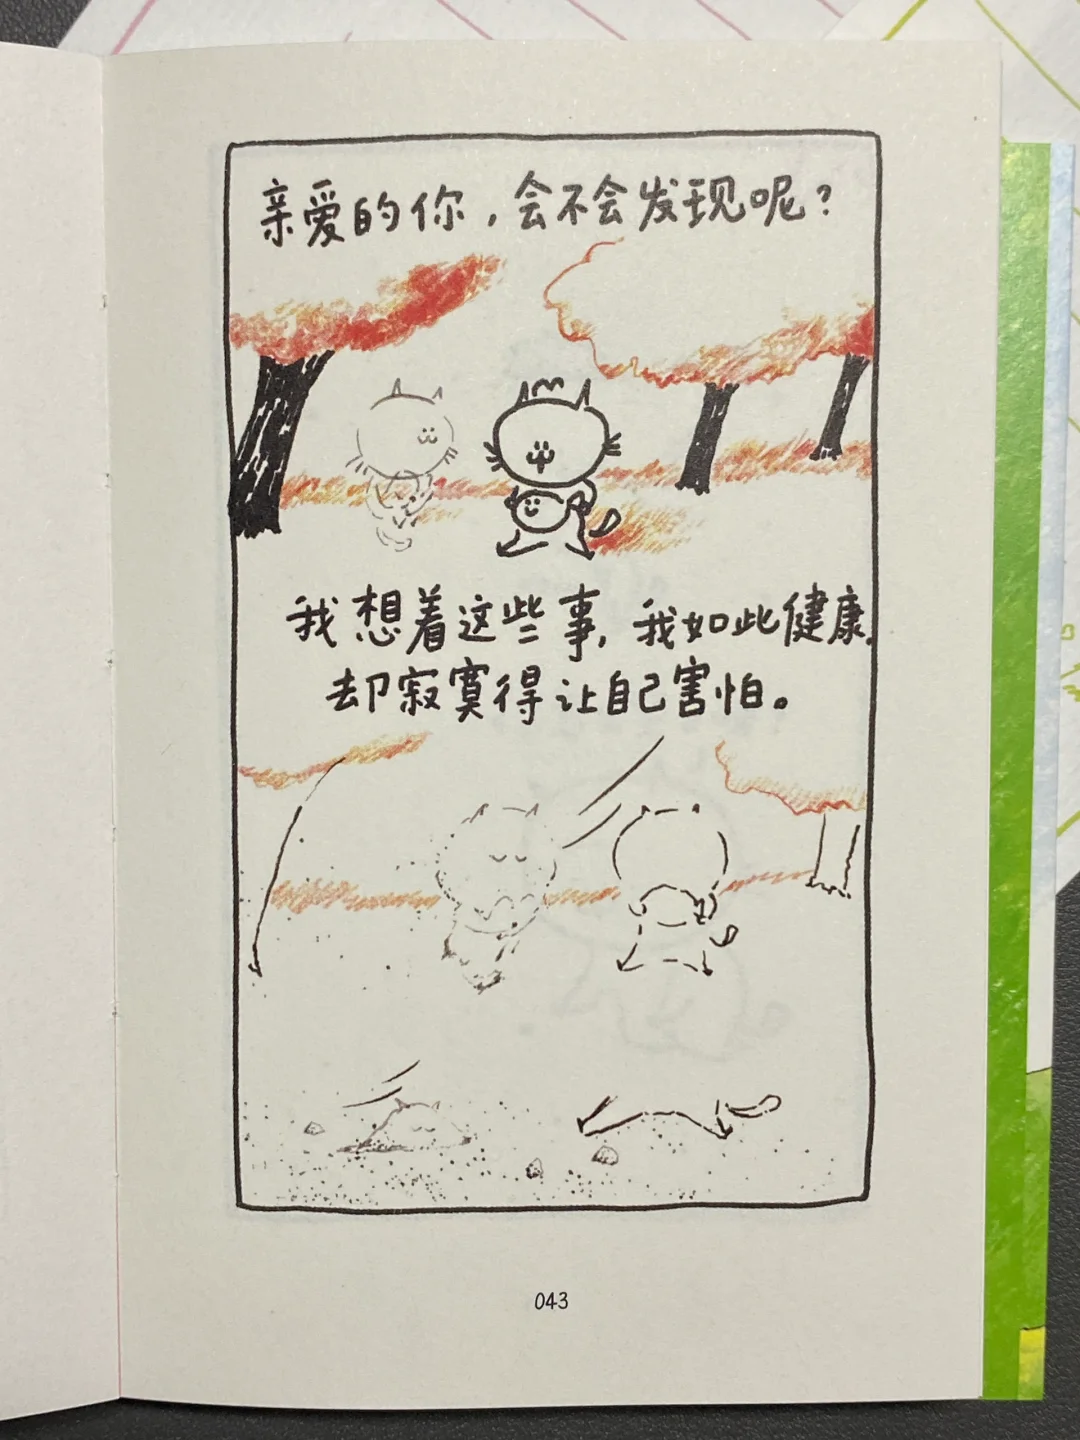 亲爱的你，会不会发现呢？
我想着这些事，我如此健康，
却寂寞得让自己害怕。
043